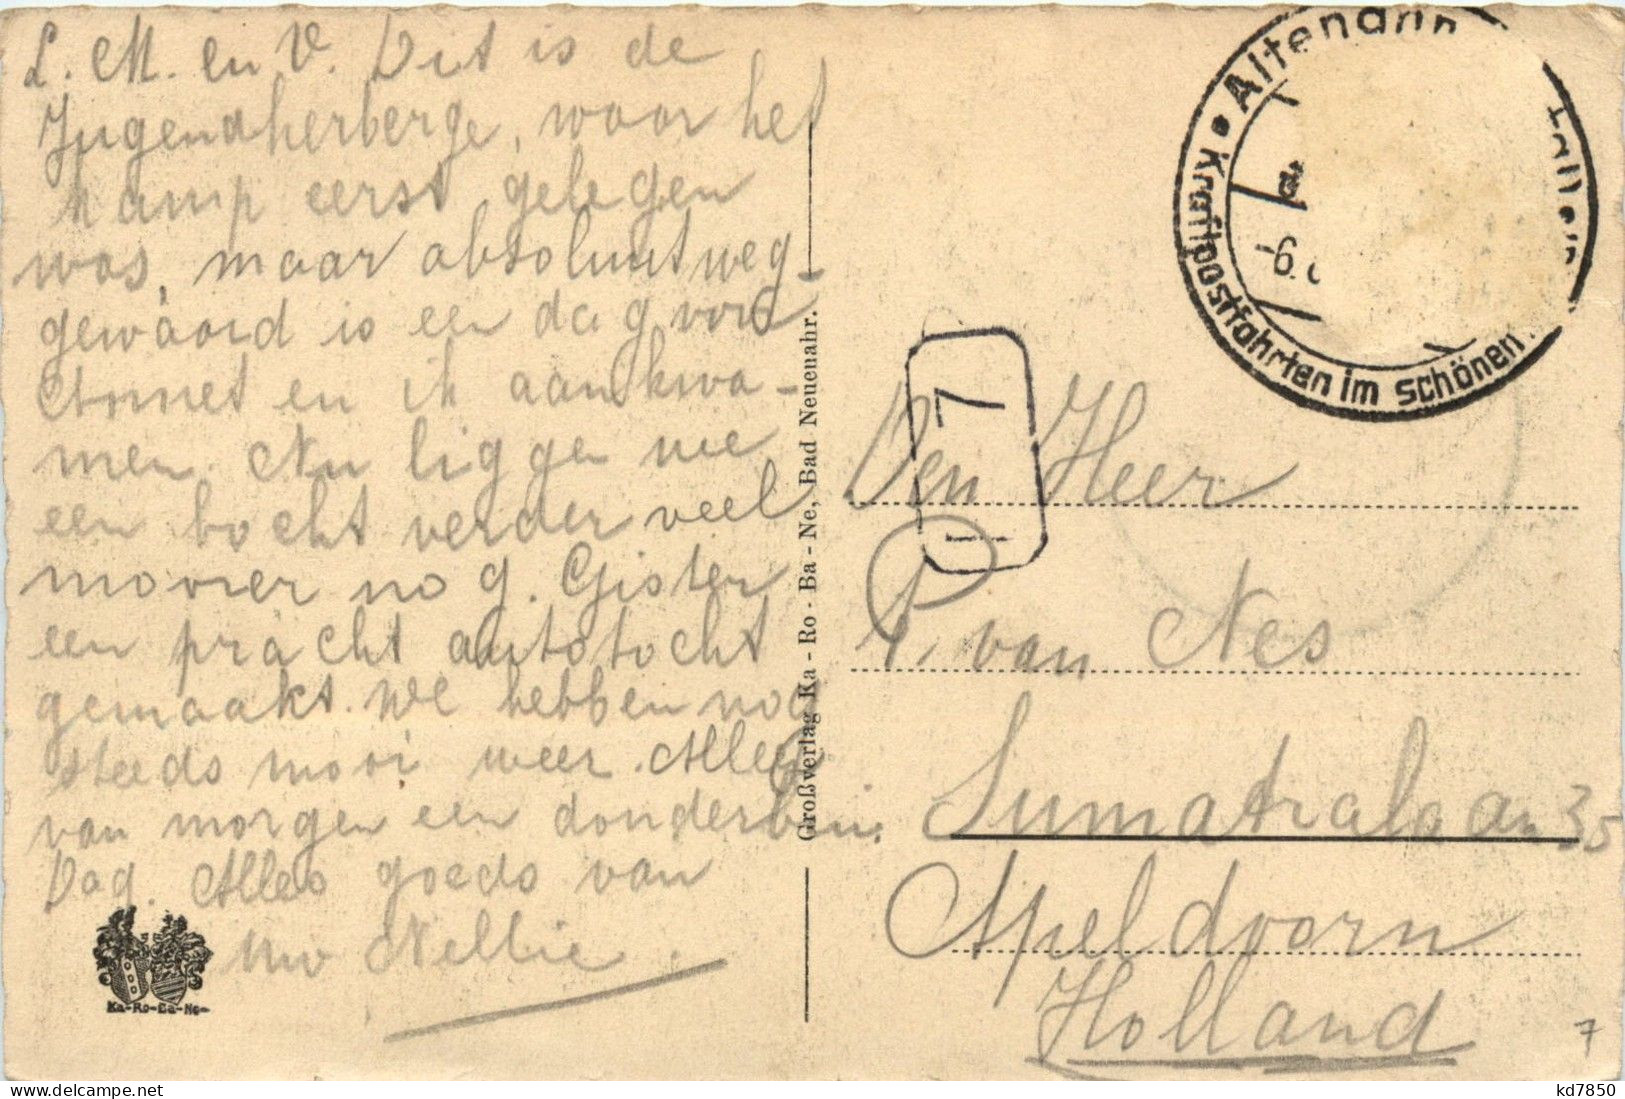 L. M. en V. Dit is de
Jugendherberge, waar het
kamp eerst gelegen
was, maar absoluut weg-
gewaaid is een dag vord
en ik aankwa-
men. Nu liggen we
een bocht verder veel
mooier nog. Gister
een pracht autotocht
gemaakt. We hebben nog
steeds mooi weer. Alleen
van morgen een donderbui.
Dag. Alles goeds van
Uw Nellie.
Ka-Ro-Ba-Ne-
Großverlag Ka-Ro-Ba-Ne, Bad Neuenahr.
Altenahr
Kraftpostfahrten im schönen
-6.
7
Den Heer
P. van Nes
Sumatralaan 35
Apeldoorn
Holland
7
kd7850